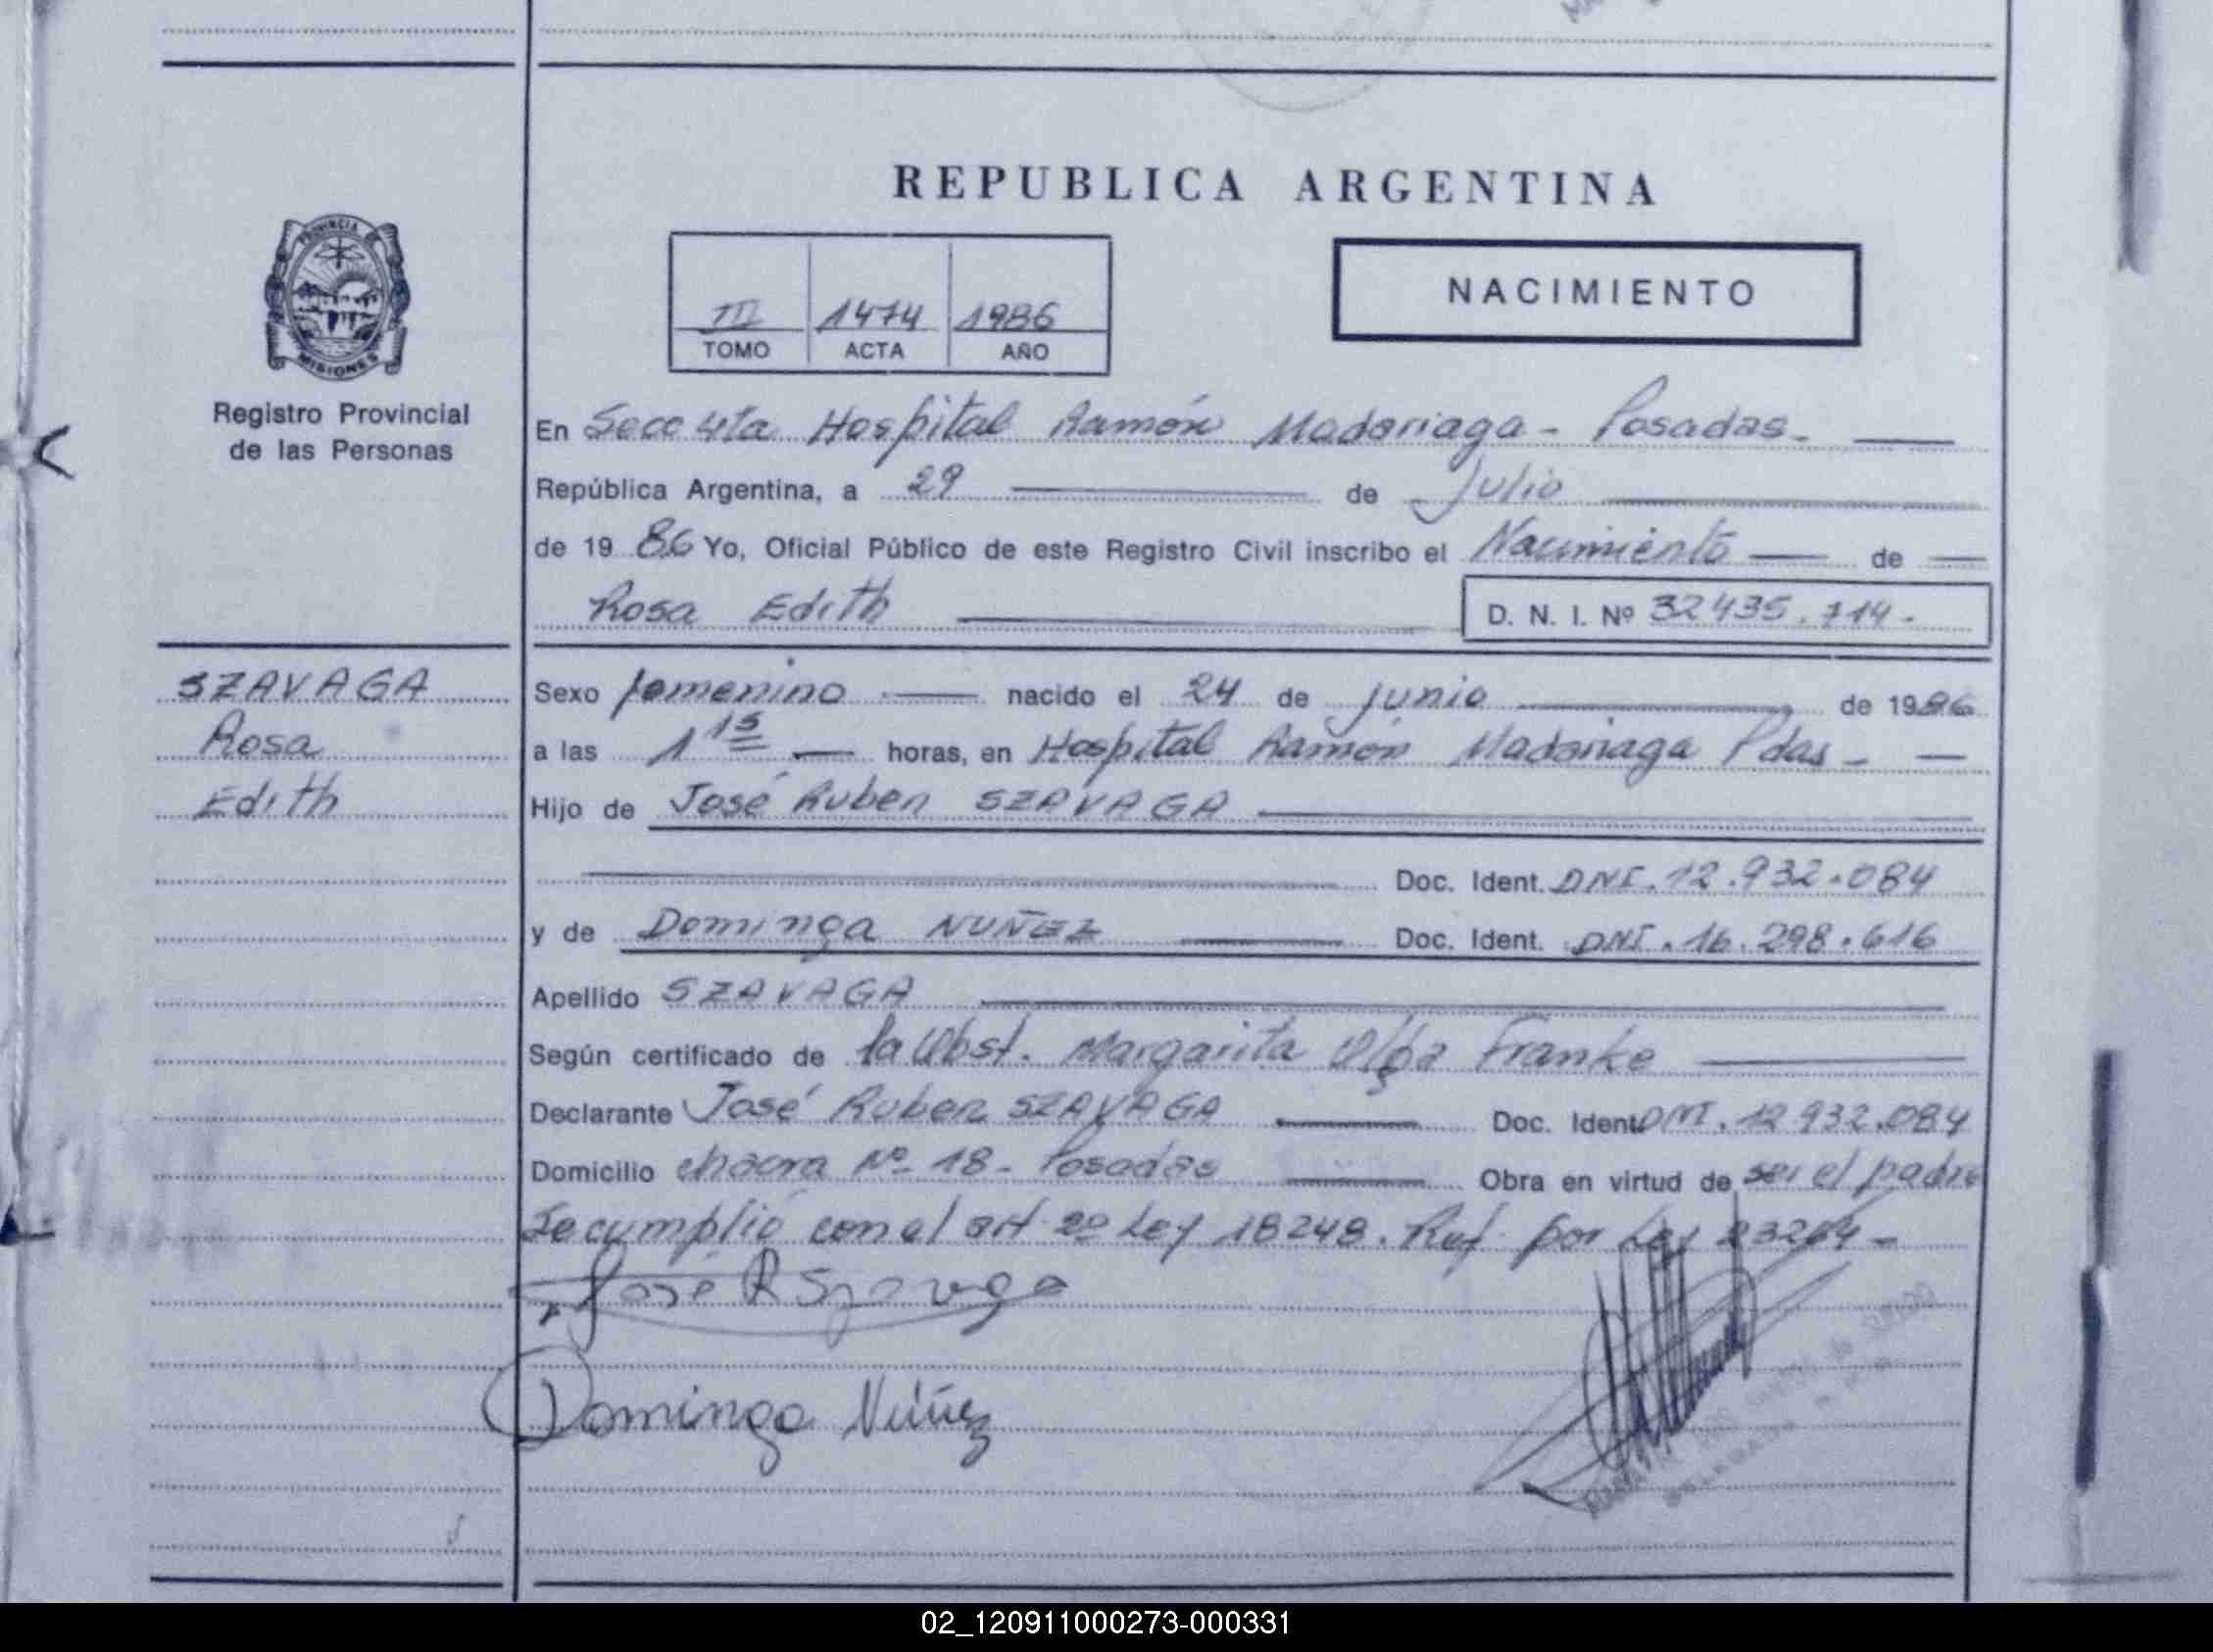 REPUBLICA ARGENTINA
PROVINCIA DE
MISIONES
Registro Provincial
de las Personas
III 1474 1986
TOMO ACTA AÑO
NACIMIENTO
En Secc 4ta Hospital Ramón Madariaga - Posadas-
República Argentina, a 29 de Julio
de 19 86 Yo, Oficial Público de este Registro Civil inscribo el Nacimiento de
Rosa Edith D. N. I. Nº 32435.714-
SZAVAGA
Rosa
Edith
Sexo femenino nacido el 24 de junio de 1986
a las 1 15 horas, en Hospital Ramón Madariaga Pdas-
Hijo de José Ruben SZAVAGA
Doc. Ident. DNI. 12.932.084
y de Dominga NUÑEZ Doc. Ident. DNI. 16.298.616
Apellido SZAVAGA
Según certificado de la Obst. Margarita Olga Franke
Declarante José Ruben SZAVAGA Doc. Ident DNI. 12 932.084
Domicilio chacra Nº 18- Posadas Obra en virtud de ser el padre
Se cumplió con el art 2º Ley 18248. Ref. por Ley 23264-
José R Szavaga
Dominga Núñez
02_120911000273-000331